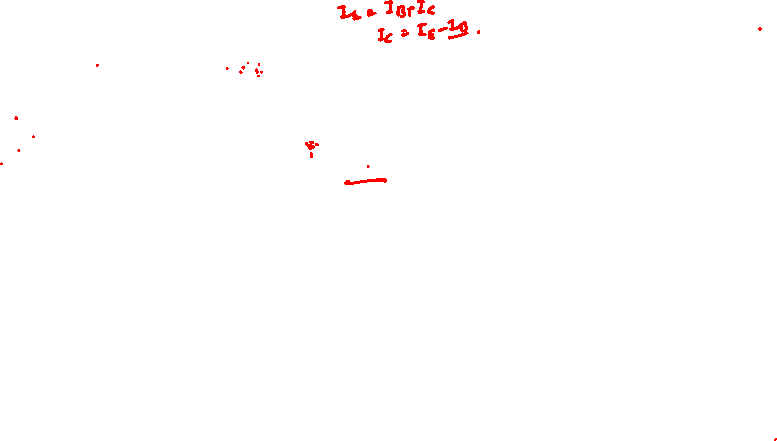 I_E = I_B + I_C
I_C = I_E - I_B.